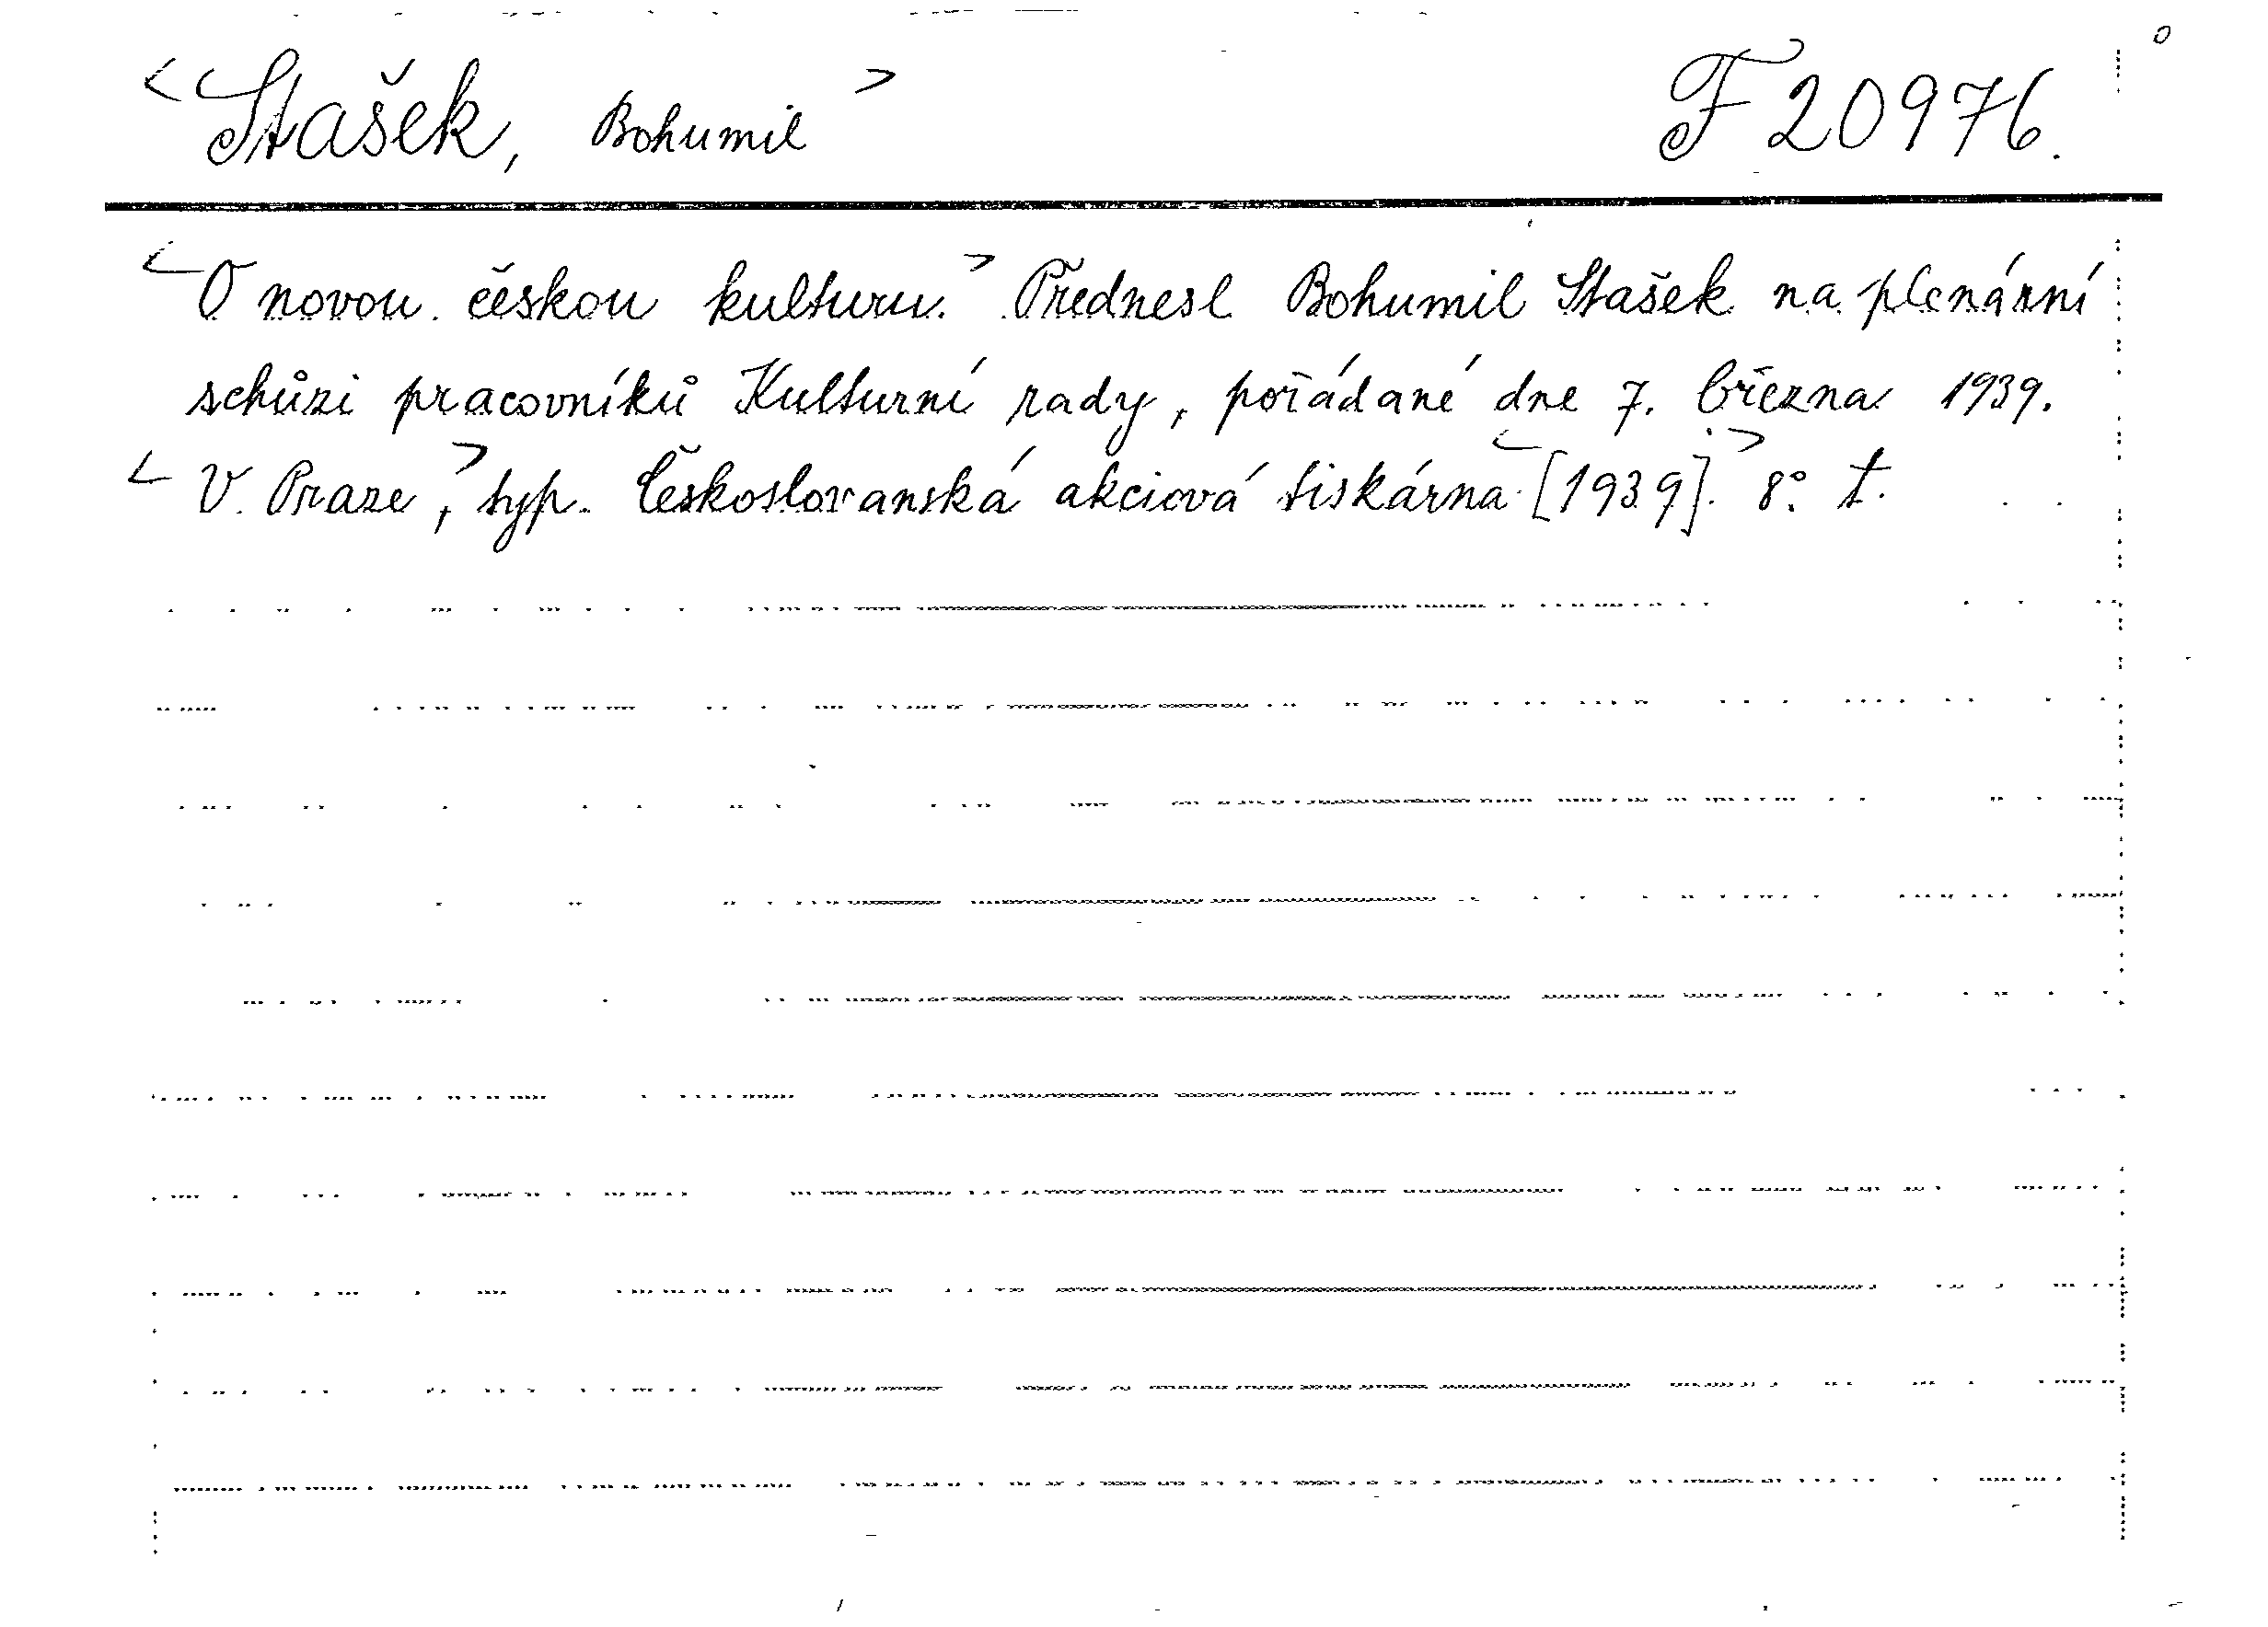 <Stašek, Bohumil> F 20976.
<O novou českou kulturu.> Přednesl Bohumil Stašek na plenární
schůzi pracovníků Kulturní rady, pořádané dne 7. března 1939.
<V Praze,> typ. Českoslovanská akciová tiskárna <[1939].> 8°. t.